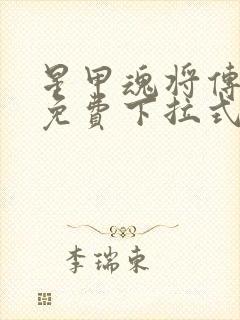 星甲魂将傳
免費下拉式
李瑞東